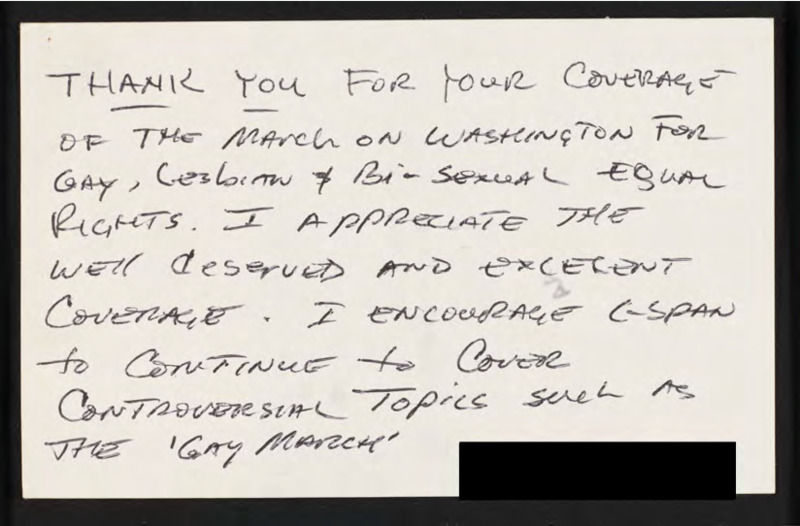 THANK YOU FOR YOUR COVERAGE
OF THE MARCH ON WASHINGTON FOR
GAY, LESBIAN & BI-SEXUAL EQUAL
RIGHTS. I APPRECIATE THE
WELL DESERVED AND EXCELENT
COVERAGE. I ENCOURAGE C-SPAN
to CONTINUE to COVER
CONTROVERSIAL TOPICS SUCH AS
THE 'GAY MARCH'